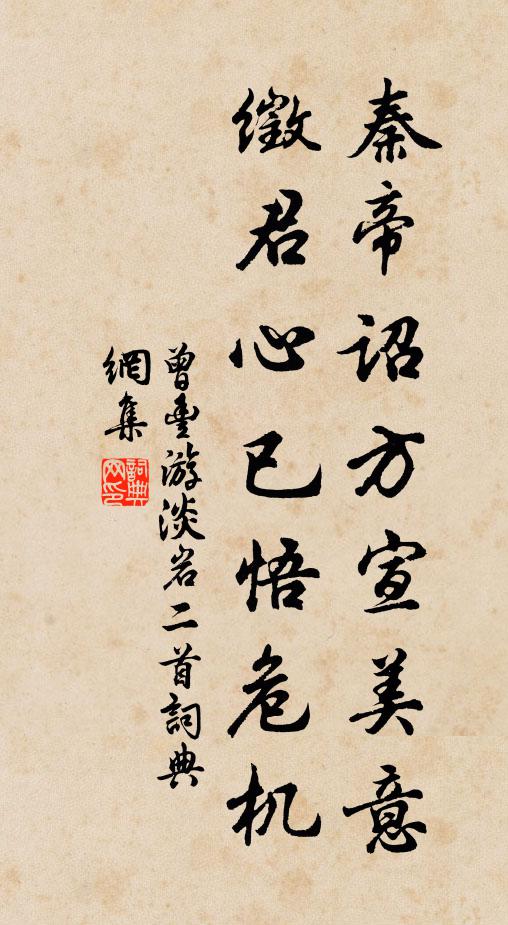 秦帝詔方宣美意
徵君心已悟危机
曾豊游淡岩二首詞典
網集
詞典網印